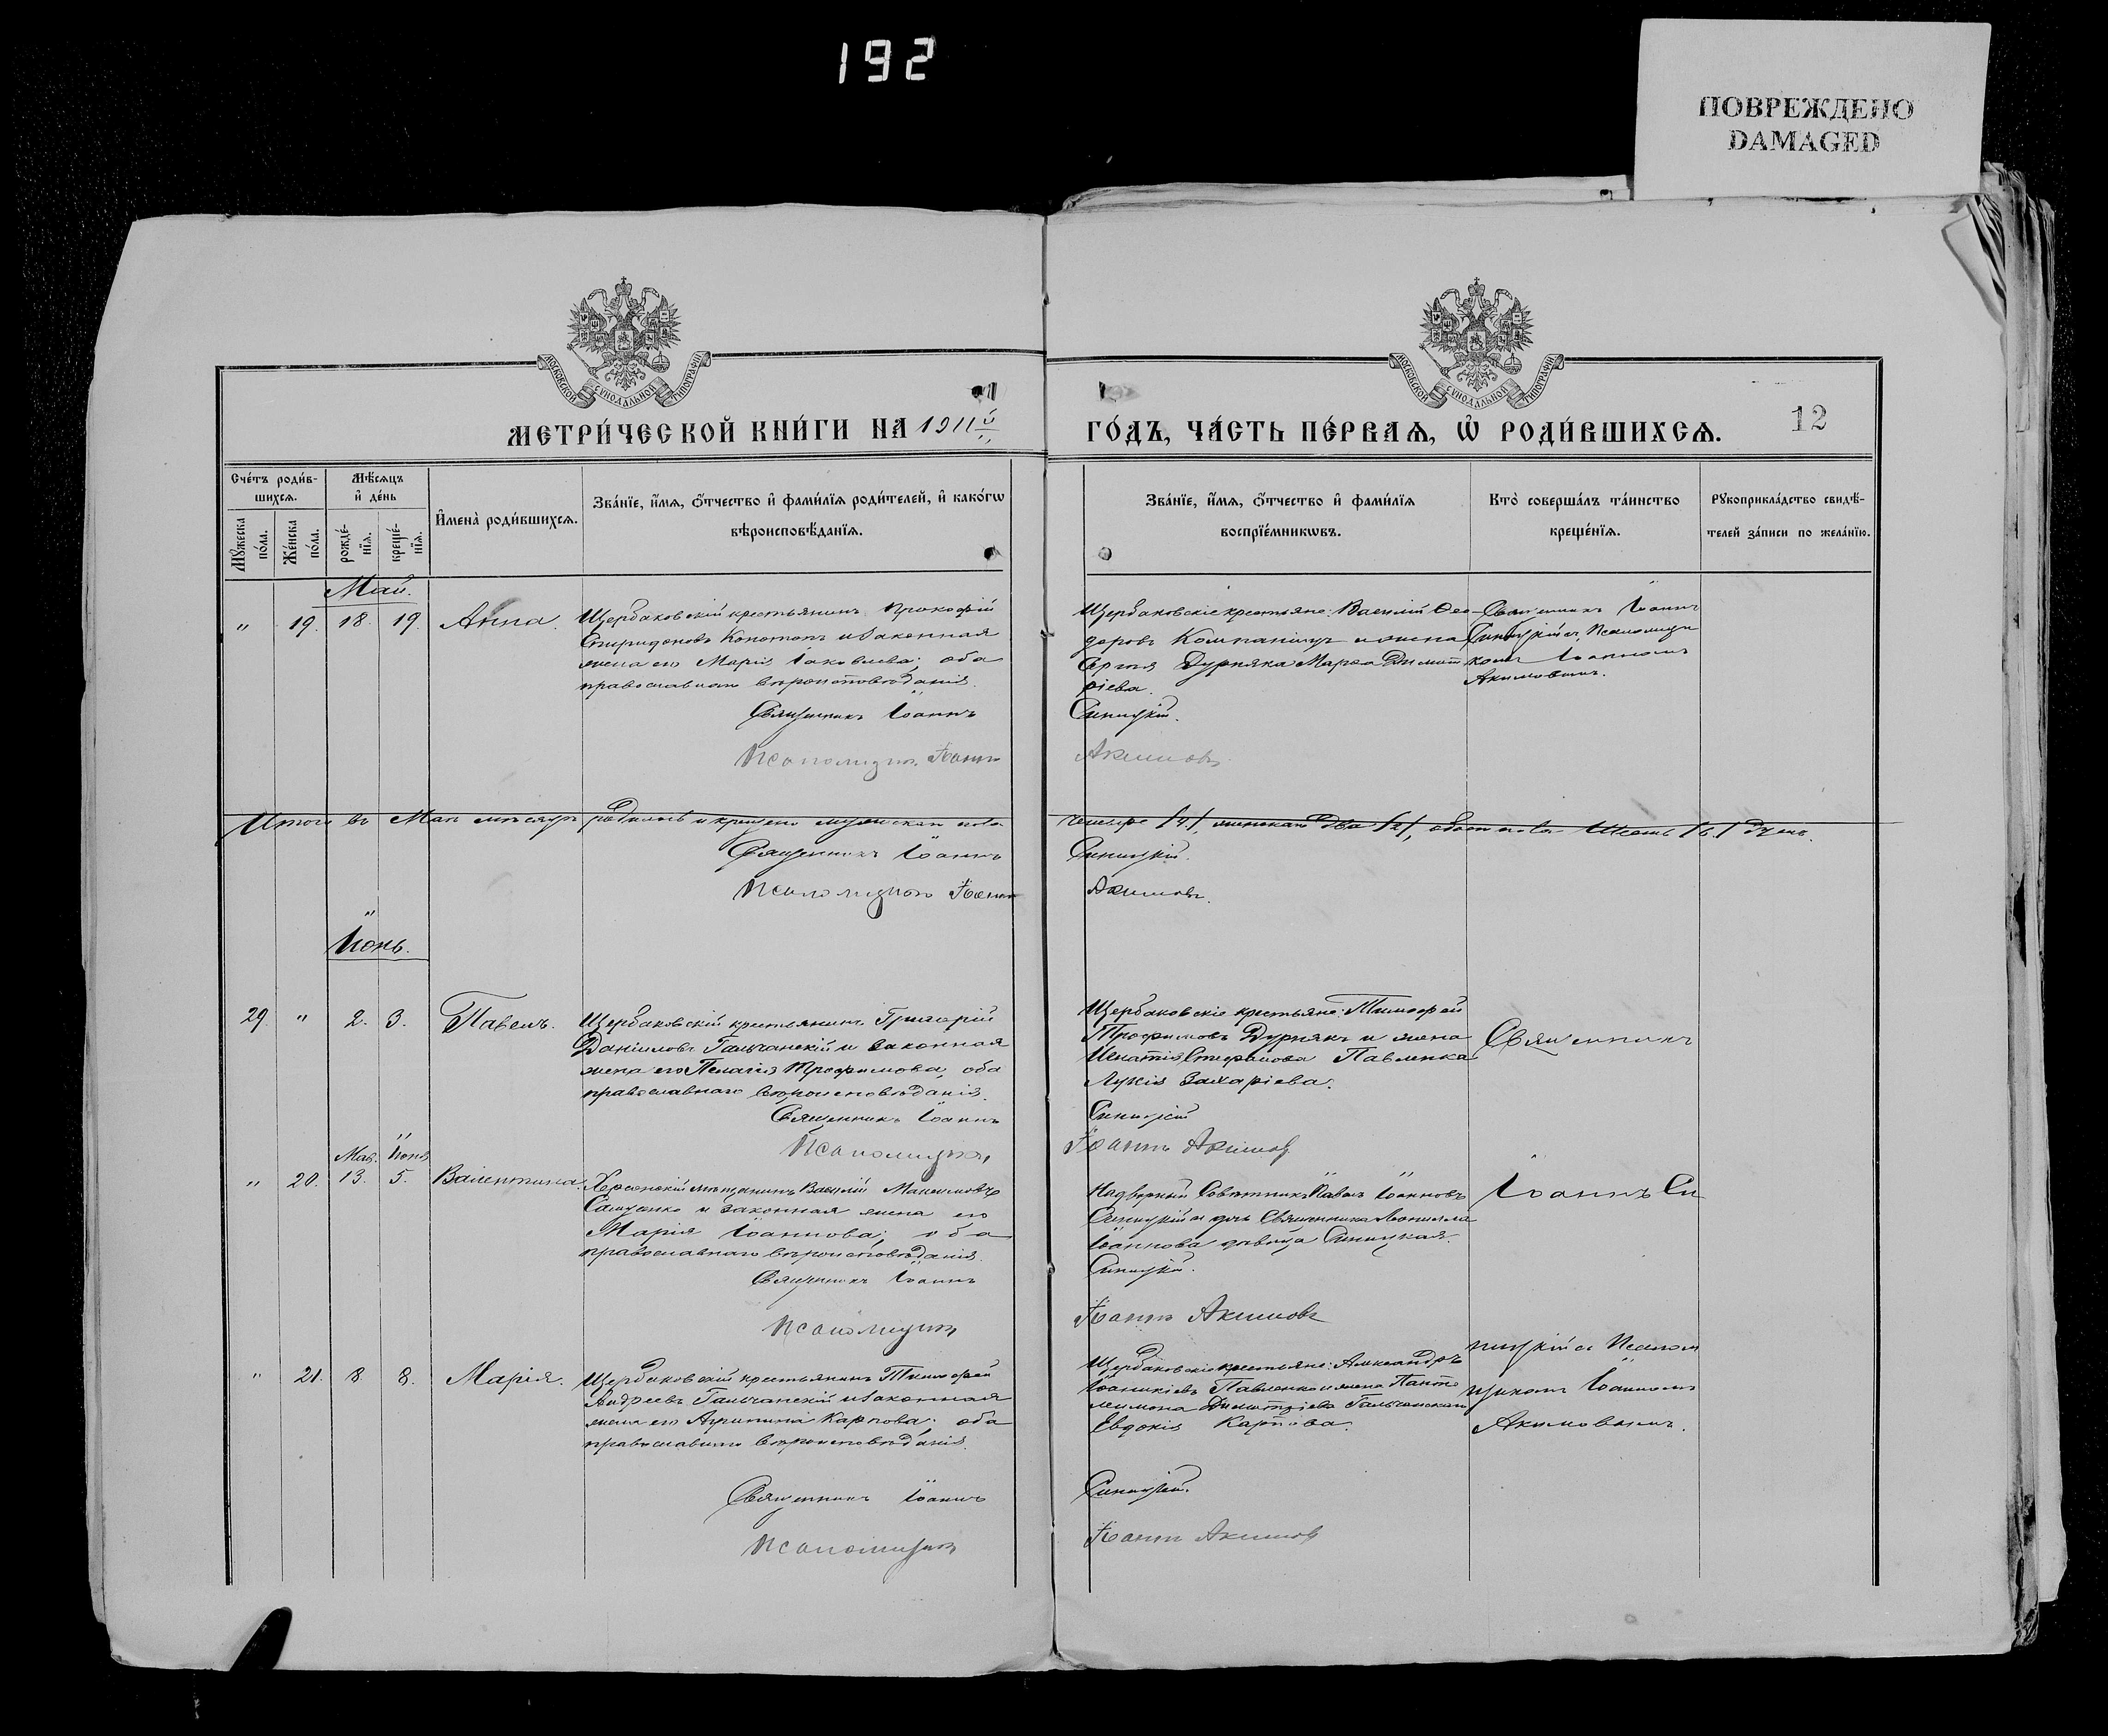 192
ПОВРЕЖДЕНО
DAMAGED
МОСКОВСКОЙ СѴНОДАЛЬНОЙ ТИПОГРАФІИ
МОСКОВСКОЙ СѴНОДАЛЬНОЙ ТИПОГРАФІИ
МЕТРИ́ЧЕСКОЙ КНИ́ГИ НА 1911й
ГО́ДЪ, ЧА́СТЬ ПЕ́РВАѦ, Ѡ҆ РОДИ́ВШИХСѦ.
12
Сче́тъ роди́в-
шихсѧ.
Мꙋ́жеска по́ла.
Же́нска по́ла.
Мѣ́сѧцъ
и҆ де́нь
рожде́-
нїѧ.
креще́-
нїѧ.
И҆мена̀ роди́вшихсѧ.
Зва́нїе, и҆́мѧ, ѻ҆́тчество и҆ фами́лїѧ роди́телей, и҆ како́гѡ
вѣроисповѣ́данїѧ.
Зва́нїе, и҆́мѧ, ѻ҆́тчество и҆ фами́лїѧ
воспрїе́мникѡвъ.
Кто̀ соверша́лъ та́инство
креще́нїѧ.
Рꙋкоприкла́дство свидѣ́-
телей за́писи по жела́нїю.
Май.
" 19. 18. 19. Анна.
Щербаковскій крестьянинъ Прокофій
Спиридоновъ Конотопъ и законная
жена его Марія Іаковлева, оба
православнаго вѣроисповѣданія.
Священникъ Іоаннъ
Псаломщикъ Іоаннъ
Щербаковскіе крестьяне: Василій Ѳео-
доровъ Компаніецъ и жена
Сергія Дурняка Марѳа Димит
ріева.
Синицкій.
Акимовъ
Священникъ Іоаннъ
Синицкій съ Псаломщи
комъ Іоанномъ
Акимовымъ.
Итого въ Маѣ мѣсяцѣ родилось и крещено мужескаго пола
четыре /4/, женскаго два /2/, обоего пола шесть /6/ душъ.
Священникъ Іоаннъ
Синицкій.
Псаломщикъ Іоаннъ
Акимовъ.
Іюнь.
29. " 2. 3. Павелъ.
Щербаковскій крестьянинъ Григорій
Даніиловъ Гальчанскій и законная
жена его Пелагія Трофимова, оба
православнаго вѣроисповѣданія.
Священникъ Іоаннъ
Псаломщикъ
Щербаковскіе крестьяне: Тимофей
Трофимовъ Дурнякъ и жена
Игнатія Стефанова Павленка
Лукія Захаріева.
Синицкій
Іоаннъ Акимовъ
Священникъ
Мая. Іюня
" 20. 13. 5. Валентина.
Херсонскій мѣщанинъ Василій Максимовъ
и законная жена его
Марія Іоаннова, оба
православнаго вѣроисповѣданія.
Священникъ Іоаннъ
Псаломщикъ
Надворный Совѣтникъ Павелъ Іоанновъ
Синицкій и дочь Священника
Іоаннова дѣвица Синицкая.
Синицкій.
Іоаннъ Акимовъ
Іоаннъ Си
" 21. 8. 8. Марія.
Щербаковскій крестьянинъ Тимофей
Андреевъ Гальчанскій и законная
жена его Агрипина Карпова, оба
православнаго вѣроисповѣданія.
Священникъ Іоаннъ
Псаломщикъ
Щербаковскіе крестьяне: Александръ
Іоаникіевъ Павленко и жена Панте
леимона Димитріева Гальчанскаго
Евдокія Карпова.
Синицкій.
Іоаннъ Акимовъ
ницкій съ Псалом
щикомъ Іоанномъ
Акимовымъ.